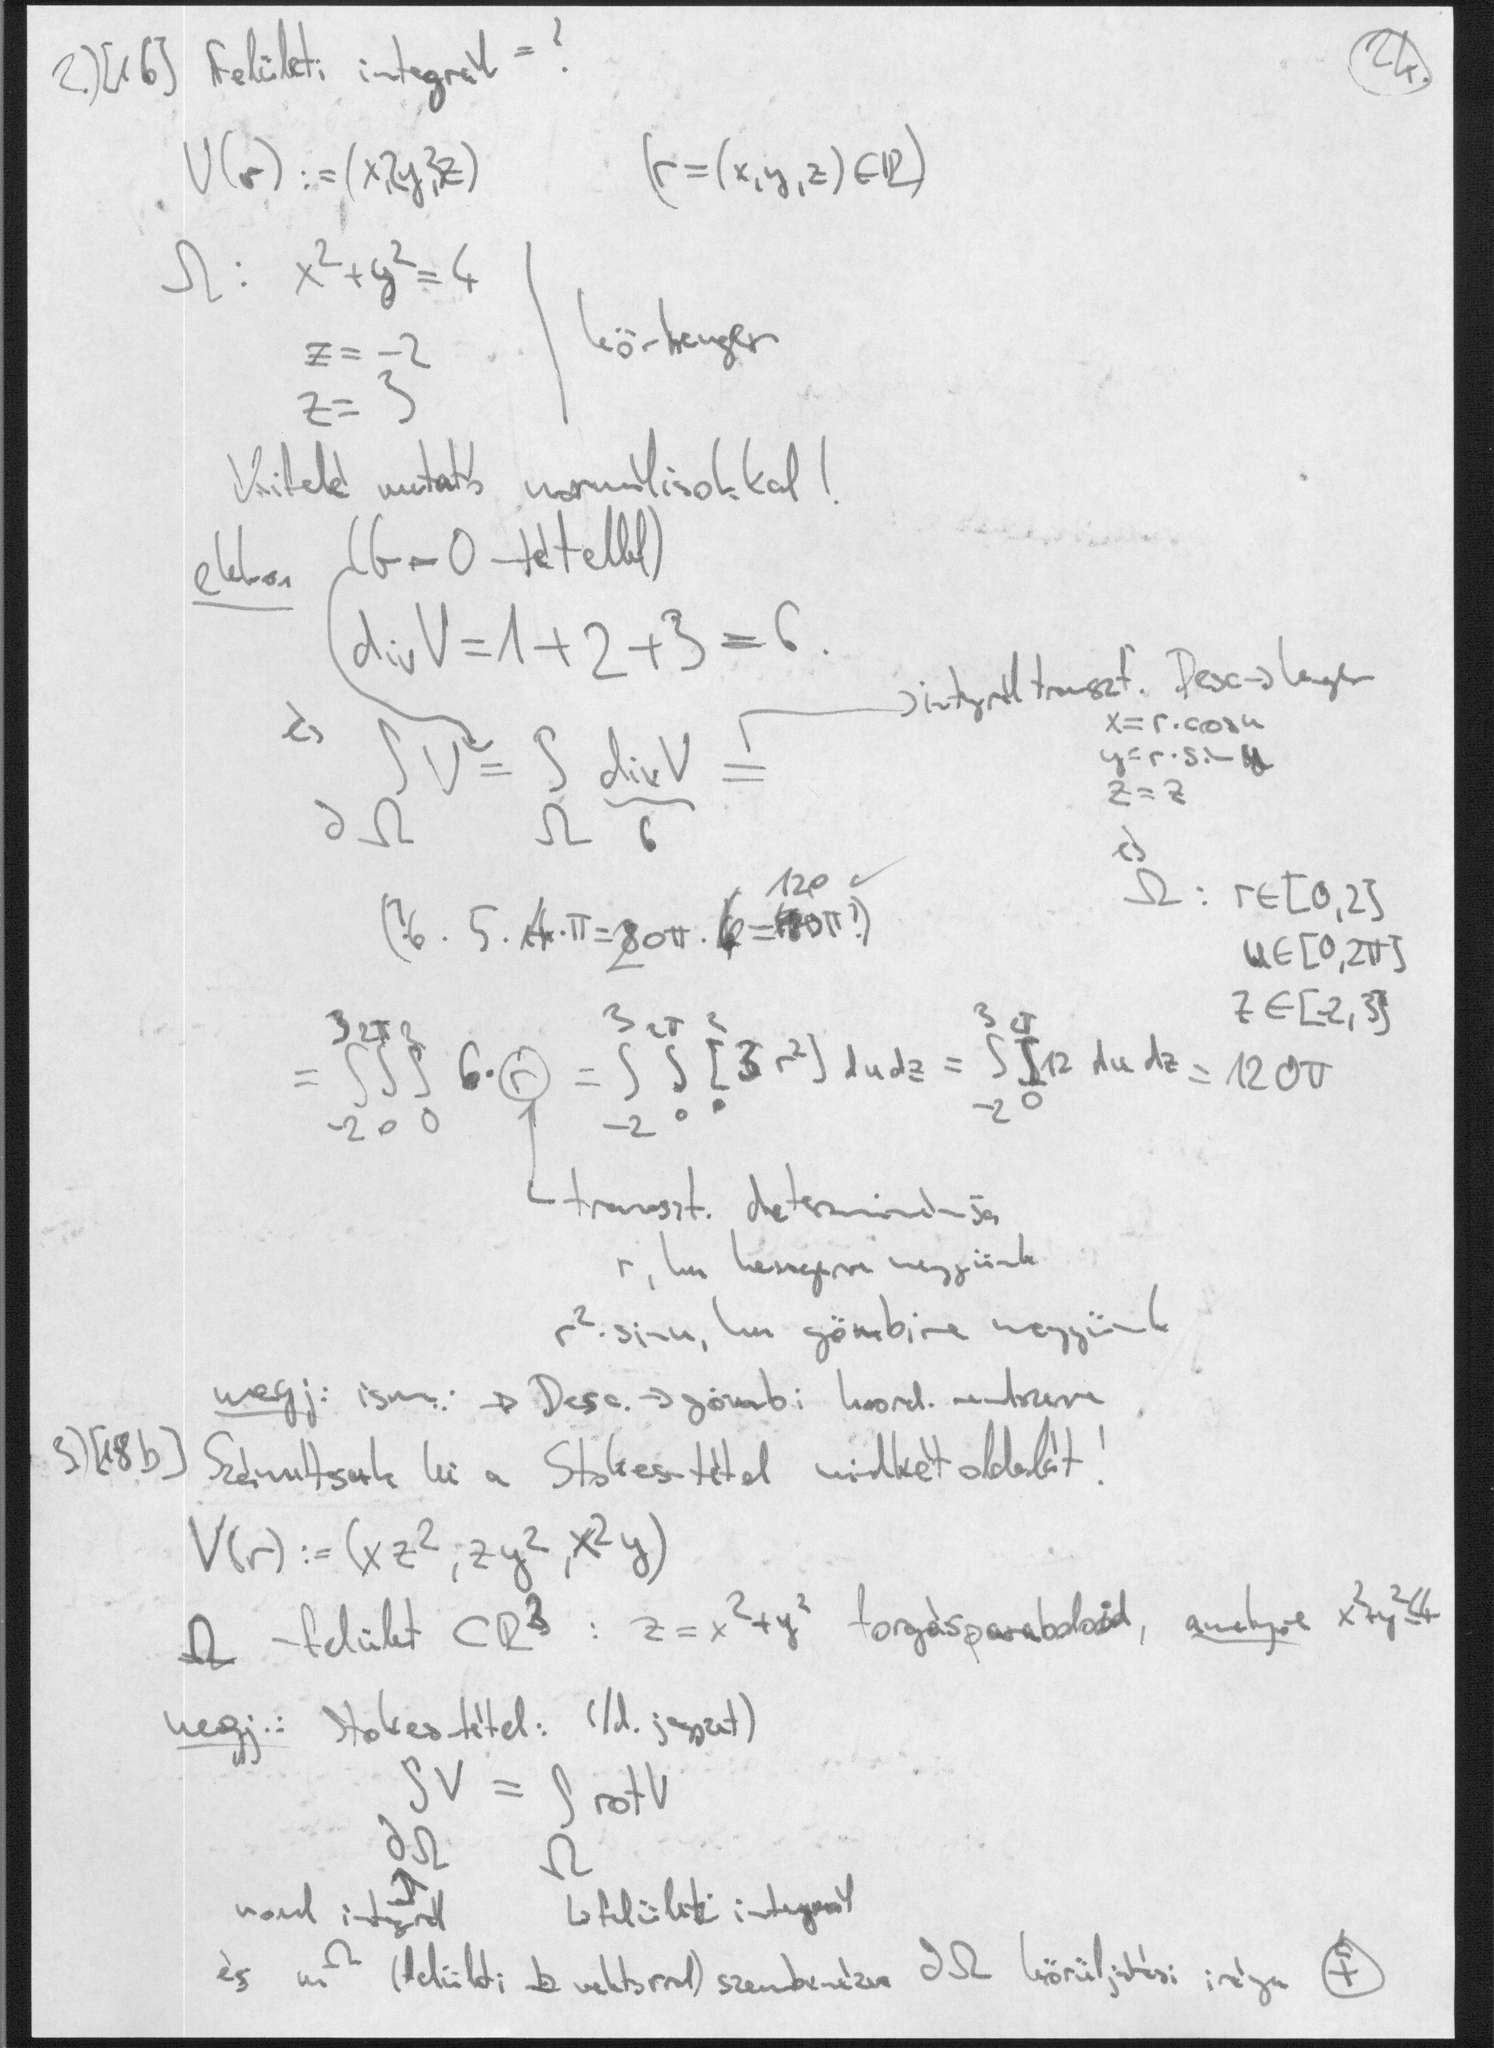 24.
2.)[16] Felületi integrál = ?
V(r) := (x, 2y, 3z) (r = (x, y, z) ∈ ℝ)
Ω : x² + y² = 4
z = -2
z = 3
körhenger
Kifelé mutató normálisokkal!
ekkor (G-O-tétellel)
div V = 1 + 2 + 3 = 6.
→ integrál transzf. Desc → henger
x = r·cos u
y = r·sin u
z = z
és ∫_{∂Ω} V = ∫_Ω div V =
6
és
Ω : r ∈ [0, 2]
u ∈ [0, 2π]
z ∈ [-2, 3]
(?6 · 5 · 4 · π = 20π · 6 = 120π?) ✓
= ∫_{-2}^{3} ∫_0^{2π} ∫_0^2 6·r = ∫_{-2}^{3} ∫_0^{2π} [3r²]_0^2 du dz = ∫_{-2}^{3} ∫_0^{2π} 12 du dz = 120π
transzf. determinánsa
r, ha hengerre megyünk
r²·sin u, ha gömbire megyünk
megj: ism.: → Desc. → gömbi koord. rendszerre
3)[18b] Számítsuk ki a Stokes-tétel mindkét oldalát!
V(r) := (xz², zy², x²y)
Ω - felület ⊂ ℝ³ : z = x² + y² forgásparaboloid, amelyre x²+y²≤4
megj.: Stokes-tétel: (ld. jegyzet)
∫_{∂Ω} V = ∫_Ω rot V
vonal integrál ↳ felületi integrál
és m^Ω (felületi vektorral) szembenézve ∂Ω körüljárási iránya +